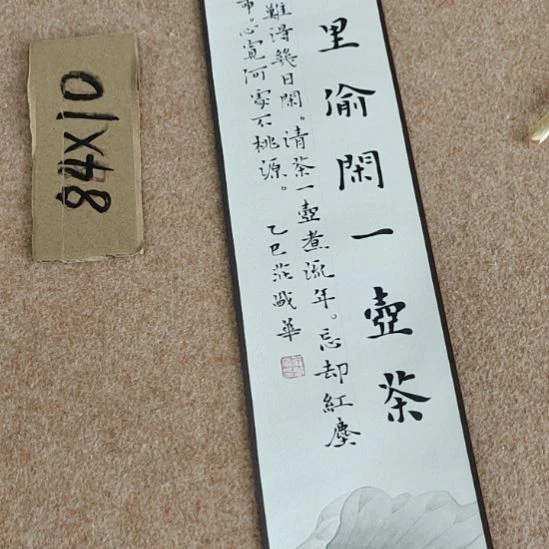 84X10
里偷閑一壺茶
難得幾日閑。清茶一壺煮流年。忘却紅塵
布。心寬何處不桃源。
乙巳莊威華